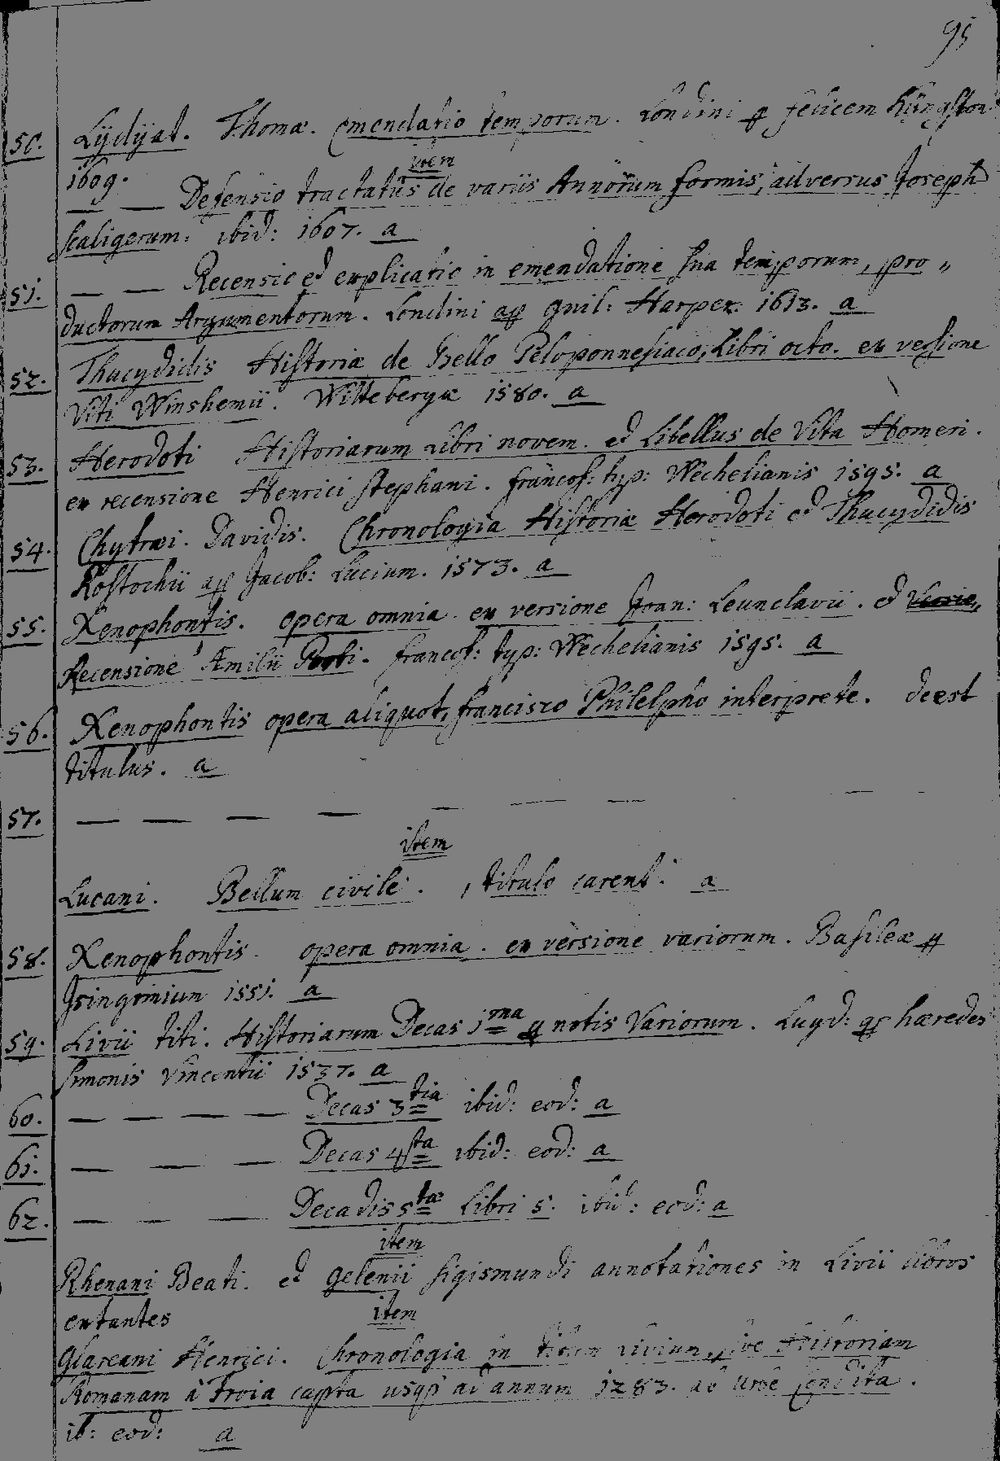 95
50. Lijdijat. Thomæ. emendatio temporum. Londini
1609. item
— Defensio tractatus de variis Annorum formis, adversus Joseph
scaligerum. ibid: 1607. a
51. — — Recensio et explicatio in emendatione sua temporum, pro„
ductorum Argumentorum. Londini ap guil: Harper. 1613. a
52. Thucydidis Historiæ de Bello Peloponnesiaco, Libri octo. ex versione
Viti Winshemii. Wittebergæ 1580. a
53. Herodoti Historiarum Libri novem. et Libellus de Vita Homeri.
ex recensione Henrici stephani. francof: typ: Wechelianis 1595. a
54. Chytræi. Davidis. Chronologia Historiæ Herodoti et Thucydidis
Rostochii ap Jacob: Lucium. 1573. a
55. Xenophontis. opera omnia ex versione Joan: Leunclavii. et
Recensione Æmilii Porti. francof: typ: Wechelianis 1595. a
56. Xenophontis opera aliquot, francisco Philelpho interprete. deest
titulus. a
57. — — — — — — — —
item
Lucani. Bellum civile. , titulo carent. a
58. Xenophontis. opera omnia. ex versione variorum. Basileæ
Isingrinium 1551. a
59. Livii titi. Historiarum Decas 1ma notis Variorum. Lugd: ap hæredes
simonis vincentii 1537. a
60. — — — — Decas 3tia ibid: eod: a
61. — — — Decas 4ta ibid: eod: a
62. — — — Decadis 5tæ Libri 5. ibid: eod: a
item
Rhenani Beati. et gelenii sigismundi annotationes in Livii libros
extantes item
Glareani Henrici. Chronologia in titum Livium, sive Historiam
Romanam à Troia capta usqȝ ad annum 1283. ab urbe condita.
ib: eod: a